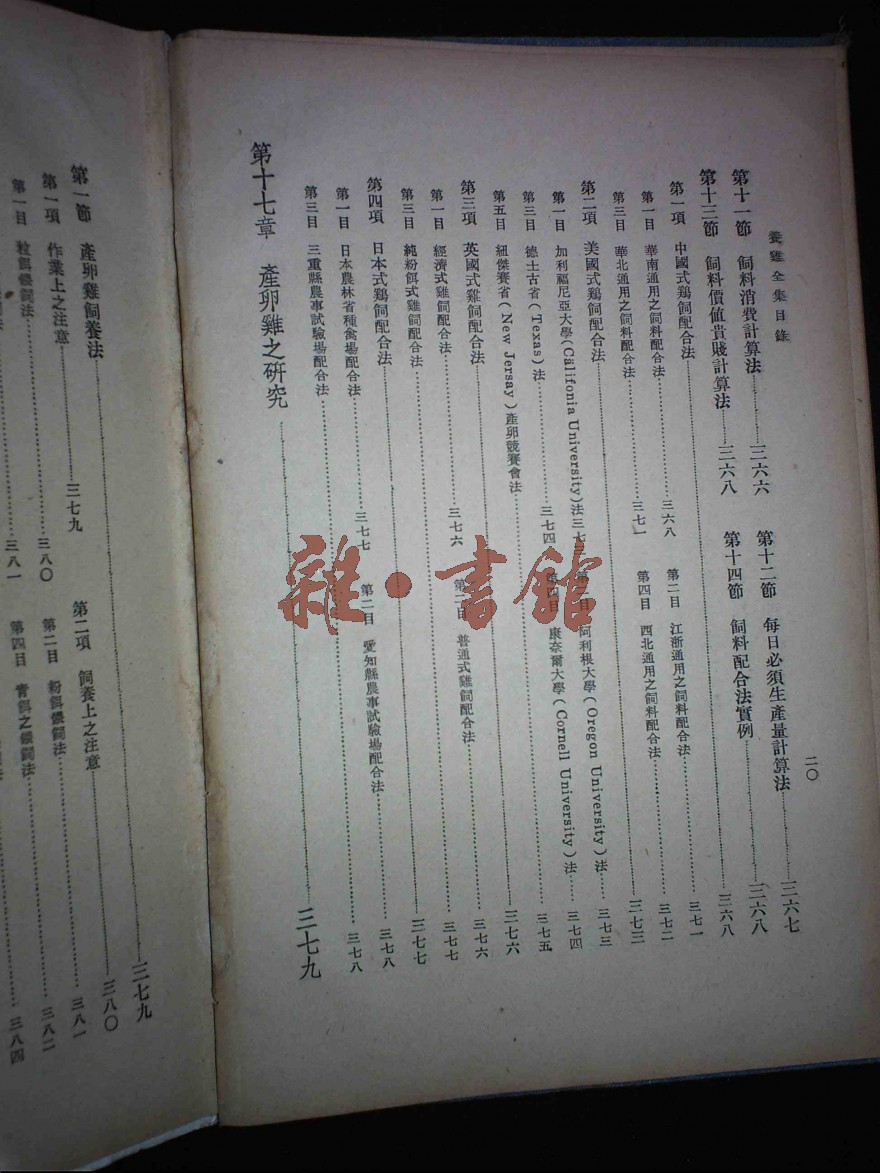 養雞全集目錄
二〇
第十一節 飼料消費計算法 三六六 第十二節 每日必須生產量計算法 三六七
第十三節 飼料價值貴賤計算法 三六八 第十四節 飼料配合法實例 三六八
第一項 中國式鷄飼配合法 三六八
第一目 華南通用之飼料配合法 三六八 第二目 江浙通用之飼料配合法 三七一
第三目 華北通用之飼料配合法 三七一 第四目 西北通用之飼料配合法 三七二
第二項 美國式鷄飼配合法 三七三
第一目 加利福尼亞大學(Califonia University)法 三七三 阿利根大學(Oregon University)法 三七三
第三目 德士古省(Texas)法 三七四 第四目 康奈爾大學(Cornell University)法 三七四
第五目 紐傑賽省(New Jersay)產卵競賽會法 三七五
第三項 英國式雞飼配合法 三七六
第一目 經濟式雞飼配合法 三七六 第二目 普通式雞飼配合法 三七六
第三目 純粉餌式雞飼配合法 三七七
第四項 日本式鷄飼配合法 三七七
第一目 日本農林省種禽場配合法 三七七 第二目 愛知縣農事試驗場配合法 三七八
第三目 三重縣農事試驗場配合法 三七八
第十七章 產卵雞之研究 三七九
第一節 產卵雞飼養法 三七九
第一項 作業上之注意 三七九 第二項 飼養上之注意 三八〇
第一目 粒餌餵飼法 三八〇 第二目 粉餌餵飼法 三八一
三八一 第四目 青餌之餵飼法 三八二
三八四
雜·書館